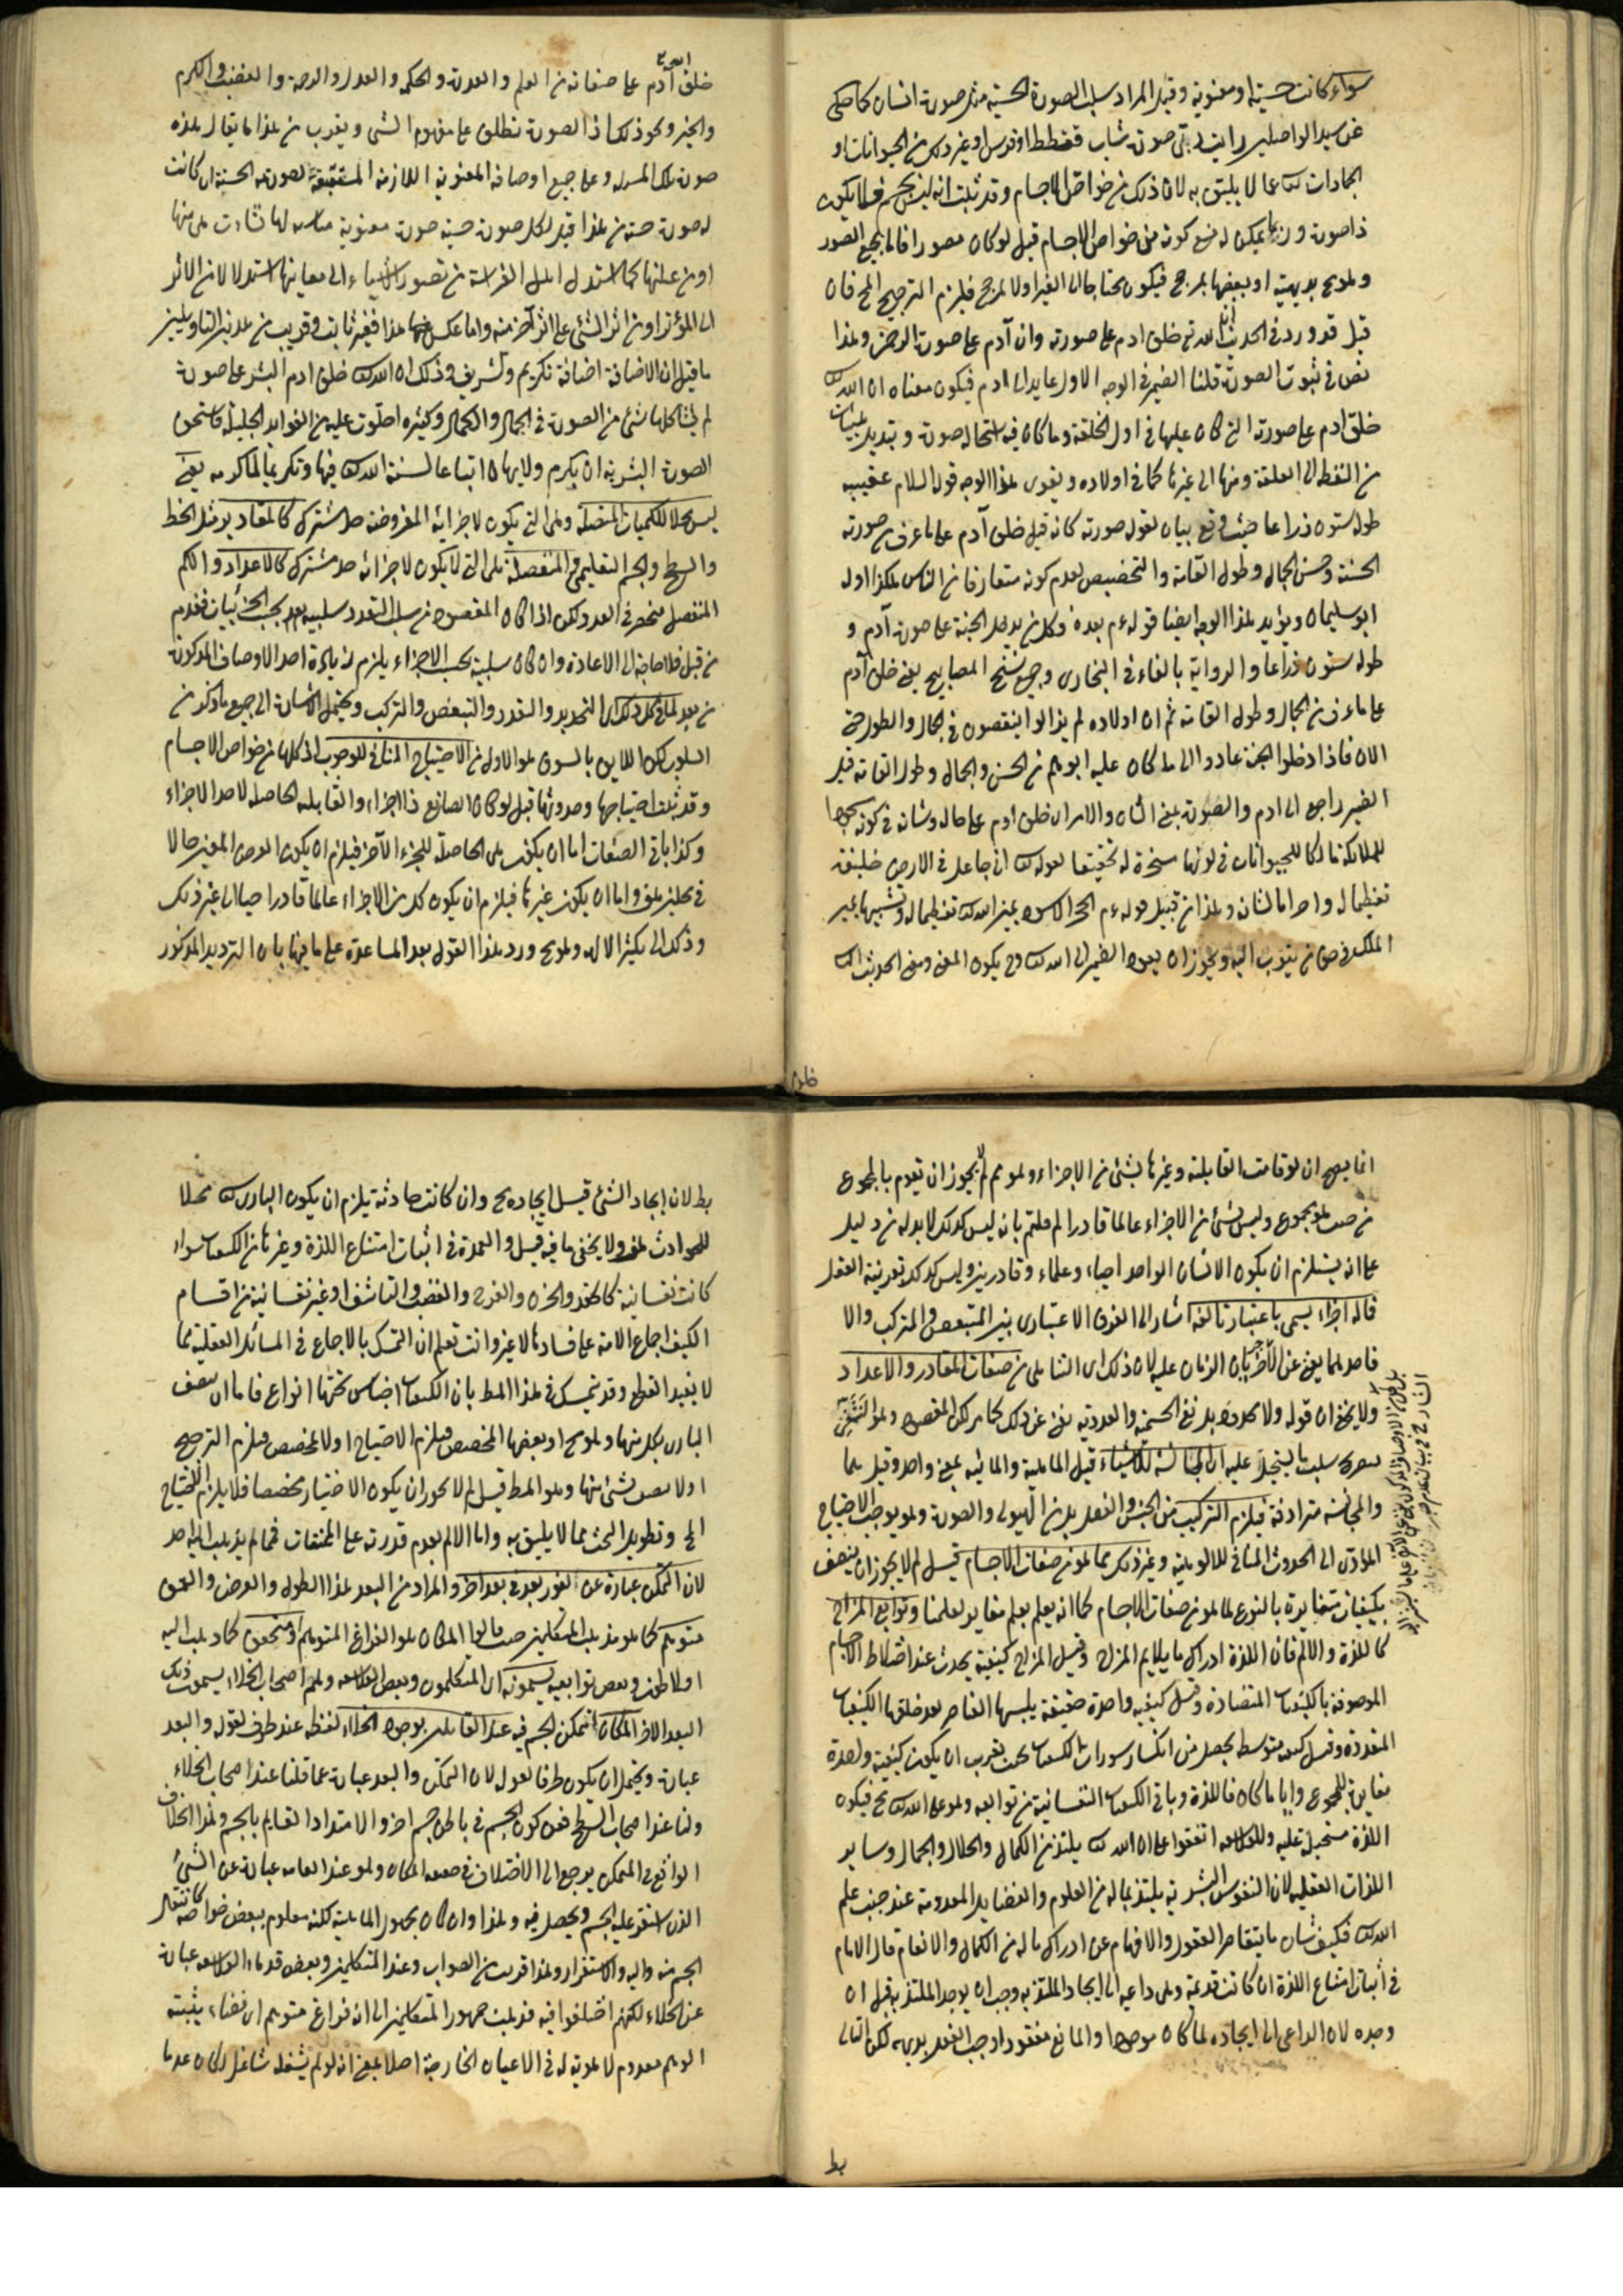 سواء كانت حسية او معنوية وقيل المراد سلب الصورة الحسية مثل صورة انسان كما حكى
عن بعض الواصلين رايت ربى صورة شاب قطط او فرس او غير ذلك من الحيوانات او
الجمادات تعالى عما لا يليق به لان ذلك من خواص الاجسام وقد ثبت انه ليس بجسم فلا يكون
ذا صورة وربما يمكن له منع كونه من خواص الاجسام قيل لو كان مصورا فاما بجميع الصور
وهو مح بديهية او ببعضها بمرجح فيكون محتاجا الى الغير او لا بمرجح فيلزم الترجيح المح فان
قيل قد ورد في الحديث ان الله تع خلق ادم على صورته وان آدم على صورة الرحمن وهذا
نص في ثبوت الصورة قلنا الضمير في الوجه الاول عايد الى ادم فيكون معناه ان الله تعالى
خلق ادم على صورته التي كان عليها في اول الخلقة وما كان فيه استحالة صورة وتبديل هيئات
من النطفة الى العلقة ومنها الى غيرها كما في اولاده ويقوى هذا الوجه قوله السلام عقيبه
طوله ستون ذراعا حيث وقع بيان لقوله صورته كانه قيل خلق آدم على ما عرف من صورته
الحسنة وحسن الجمال وطول القامة والتخصيص لعدم كونه متعارفا في الناس هكذا اوله
ابو سليمان ويؤيد هذا الوجه ايضا قوله ءم بعده وكل من يدخل الجنة على صورة آدم و
طوله ستون ذراعا والرواية بالفاء في البخارى وجميع نسخ المصابيح يعنى خلق آدم
على ما عرف من الجمال وطول القامة ثم ان اولاده لم يزالوا ينقصون في الجمال والطول حتى
الان فاذا دخلوا الجنة عادوا الى ما كان عليه ابوهم من الحسن والجمال وطول القامة قيل
الضمير راجع الى ادم والصورة بمعنى الشان والامر اى خلق ادم على حاله وشانه في كونه مسجودا
للملائكة مالكا للحيوانات في كونها مسخرة له تحقيقا لقوله تعالى انى جاعل في الارض خليفة
تعظيما له واحراما لشانه وهذا من قبيل قوله ءم الحجر الاسود يمين الله تعالى تعظيما له وتشبيها بيمين
الملك في حق من يتقرب اليه ويجوز ان يعود الضمير الى الله تعالى وح يكون المعنى ومعنى الحديث
خلق
خلق الله تع آدم على صفاته من العلم والقدرة والحكمة والعدل والرحمة والغضب والكرم
والخير ونحو ذلك اذ الصورة تطلق على مفهوم الشئ ويقرب من هذا ما يقال هذه
صورة تلك المسئلة وعلى جميع اوصافه المعنوية اللازمة المستتبعة لصورته الحسنة ان كانت
له صورة حسنة من هذا قيل لكل صورة حسية صورة معنوية مناسبة لها
او من علتها كما استدل اهل الفراسة من تصور الاشياء الى معانيها استدلالا من الاثر
الى المؤثر او من اثر الشئ على اثر آخر منه واما عكس هذا فغير ثابت وقريب من هذين التاويلين
ما قيل ان الاضافة اضافة تكريم وتشريف وذلك ان الله تعالى خلق ادم البشر على صورة
لم يشاكلها شئ من الصورة في الجمال والكمال وكثيرة احتوت عليه من الفوايد الجليلة فاستحق
الصورة البشرية ان يكرم ولا يهان اتباعا لسنة الله تعالى فيها وتكريما لما كرمه يعنى
ليس محلا للكميات المتصلة وهى التى يكون لاجزائه المفروضة حد مشترك كالمقادير مثل الخط
والسطح والجسم التعليمى والمنفصلة هى التى لا يكون لاجزائه حد مشترك كالاعداد والكم
المنفصل منحصر في العدد لكن اذا كان المقصود من سلب التعدد سلبه بحسب الجزئيات فقد علم
من قبل فلا حاجة الى الاعادة وان كان سلبه بحسب الاجزاء يلزم زيادة احد الاوصاف المذكورة
من بعد لما في كل ذلك اى التحديد والتعدد والتبعض والتركب ويحتمل الاشارة الى جميع ما ذكر من
السلوب لكن اللايق بالسوق هو الاول من الاحتياج المنافى للوجوب اذ كلها من خواص الاجسام
وقد ثبت احتياجها وحدوثها قيل لو كان الصانع ذا اجزاء والقابلية الحاصلة لاحد الاجزاء
وكذا باقى الصفات اما ان يكون هى الحاصلة للجزء الآخر فيلزم ان يكون العرض المعين حالا
في محلين هف واما ان يكون غيرها فيلزم ان يكون كل من الاجزاء عالما قادرا حيا الى غير ذلك
وذلك الى تكثير الاله وهو مح ورد هذا القول بعد المساعدة على ما فيها بان الترديد المذكور
انما يصح ان لو قامت القابلية وغيرها بشئ من الاجزاء وهو مم لم لا يجوز ان تقوم بالمجموع
من حيث هو مجموع وليس شئ من الاجزاء عالما قادرا لم قلتم بانه ليس كذلك لا بد له من دليل
على انه يستلزم ان يكون الانسان الواحد احياء وعلماء وقادرين وليس كذلك لقرينة العقل
قاله اجزاء يسمى باعتبار تالفه اشار الى الفرق الاعتبارى بين المتبعض والمتركب والا
فاحدهما يغنى عن الآخر بيان الرمان عليه لان ذلك اى التناهى من صفات المقادير والاعداد
ولا يخفى ان قوله ولا محدود بل نفى الجسمية والعددية يغنى عن ذلك كما مر لكن المقصود وهو التفنن
بصريح سلب ما يستحيل عليه اى المجانسة للاشياء قيل الماهية والمائية بمعنى واحد وقيل هما
والمجانسة مترادفة فيلزم التركيب من الجنس والفصل بل من الهيولى والصورة وهو يوجب الاحتياج
المؤدى الى الحدوث المنافى للالوهية وغير ذلك مما هو من صفات الاجسام قيل لم لا يجوز ان يتصف
بكيفيات متغايرة بالنوع لما هو من صفات الاجسام كما انه يعلم بعلم مغاير لعلمنا وتوابع المزاج
كاللذة والالم فان اللذة ادراك ما يلايم المزاج وقيل المزاج كيفية يحدث عند اختلاط الاجسام
الموصوفة بالكيفيات المتضادة وقيل كيفية واحدة حقيقة يلبسها العناصر بعد خلعها الكيفيات
المتعددة وقيل كيفية متوسطة يحصل من انكسار سورات الكيفيات بحيث يقرب ان يكون كيفية واحدة
مغايرة للمجموع وايا ما كان فاللذة وباقى الكيفيات النفسانية من توابعه وهو على الله تعالى مح فيكون
اللذة مستحيلة عليه والفلاسفة اتفقوا على ان الله تعالى يلتذ من الكمال والجلال والجمال وساير
اللذات العقلية لان النفوس البشرية يلتذ بما له من العلوم والفضايل المعدومة عند جنب علم
الله تعالى فكيف شان ما يتقاصر العقول والافهام عن ادراك ماله من الكمال والانعام قال الامام
في اثبات امتناع اللذة ان كانت قديمة وهى داعية الى ايجاد الملتذ به وجب ان يوجد الملتذ به قبل ان
وجده لان الداعى الى ايجاده لما كان موجودا والمانع مفقودا وجب الفعل بديهة لكن التالى
بط
بط لان ايجاد الشئ قبل ايجاده مح وان كانت حادثة يلزم ان يكون البارى تعالى محلا
للحوادث هف ولا يخفى ما فيه قيل والعمدة في اثبات امتناع اللذة وغيرها من الكيفيات سواء
كانت نفسانية كالحقد والحزن والفرح والغضب والتاسف او غير نفسانية من اقسام
الكيف اجماع الامة على فسادها لا غير وانت تعلم ان التمسك بالاجماع في المسائل العقلية مما
لا يفيد القطع وقد يتمسك في هذا المط بان الكيفيات اجناس تحتها انواع فاما ان يتصف
البارى بكل منها وهو مح او ببعضها لمخصص فيلزم الاحتياج او لا لمخصص فيلزم الترجيح
او لا يتصف بشئ منها وهو المط قيل لم لا يجوز ان يكون الاختيار مخصصا فلا يلزم الاحتياج
الخ وتطويل البحث مما لا يليق به واما الالم بعدم قدرته على الممتنعات فمما لم يذهب اليه احد
لان التمكن عبارة عن نفوذ بعد في بعد آخر والمراد من البعد هذا الطول والعرض والعمق
متوهم كما هو مذهب المتكلمين حيث قالوا المكان هو الفراغ المتوهم او متحقق كما ذهب اليه
افلاطون وبعض توابعيه يسمونه اى المتكلمون وبعض الفلاسفة وهم اصحاب الخلاء يسمون ذلك
البعد الاخر المكان تمكن الجسم فيه عند القائلين بوجود الخلاء لفظة عند ظرف لقوله والبعد
عبارة ويحتمل ان يكون ظرفا لقوله لان التمكن والبعد عبارة عما قلنا عند اصحاب الخلاء
واما عند اصحاب السطح فهو كون الجسم في باطن جسم اخر والامتداد القايم بالجسم وهذا الخلاف
الواقع في التمكن يرجع الى الاختلاف في حقيقة المكان وهو عند العامة عبارة عن الشئ
الذى استقر عليه الجسم ويحصل فيه وهذا وان كان مجهول الماهية لكنه معلوم ببعض خواصه كانتقال
الجسم منه واليه والاستقرار وهذا قريب من الصواب وعند المتكلمين وبعض قدماء الفلاسفة عبارة
عن الخلاء لكنهم اختلفوا فيه فذهب جمهور المتكلمين الى انه فراغ متوهم اى فضاء يثبته
الوهم معدوم لا هوية له في الاعيان الخارجية اصلا بمعنى انه لو لم يشغله شاغل لكان عدما